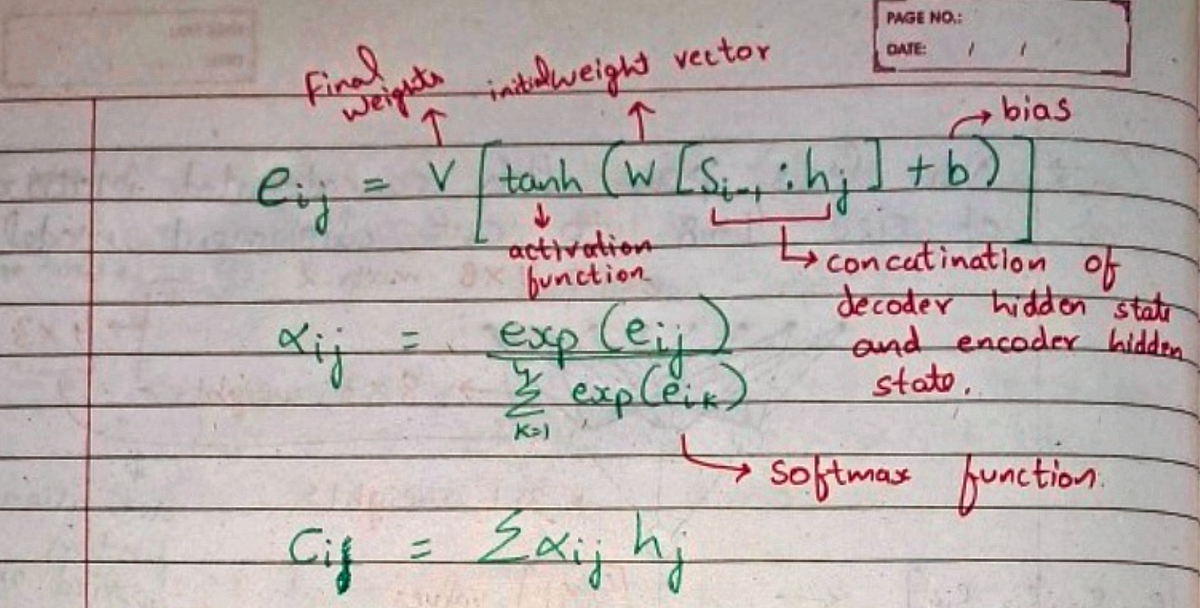 PAGE NO.:
DATE: / /
Final weights
initial weight vector
bias
e_ij = V [tanh (W [S_i-1 : h_j] + b)]
activation function
concatination of
decoder hidden state
and encoder hidden
state.
α_ij = exp(e_ij) / Σ_K=1^4 exp(e_iK)
Softmax function.
C_i = Σ α_ij h_j